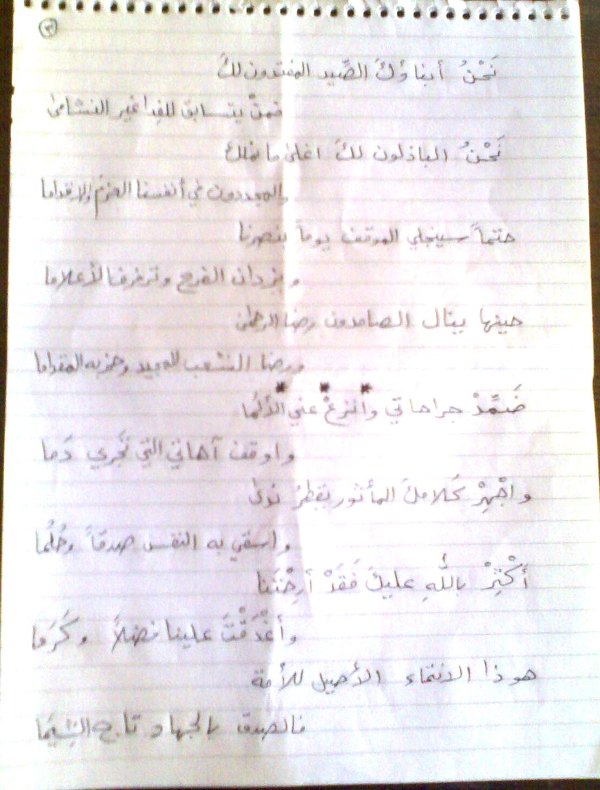 ٣
نَحْنُ أبناؤكَ الصِّيد المفتدون لكَ
فمنْ يتسابق للفدا غير النشامى
نَحْنُ الباذلون لكَ اغلى ما نملك
والمجددون في أنفسنا العزمَ والإقداما
حتماً سينجلي الموقف يوماً بنصرنا
ويزدان الفرح وترفرف الأعلاما
حينها ينال الصامدون رضا الرحمن
ورضا الشعب المجيد وحزبه المقداما
* * *
ضَمِّدْ جراحاتي وانزعْ عني الألما
واوقف آهاتي التي تجري دَما
واجْهِرْ كلامكَ المأثور يقطرُ
واسقي به النفس صدقاً وحُلُما
أكْثِرْ باللهِ عليكَ فَقَدْ أرحْتَنا
وأغْدَقْتَ علينا فضلاً وكَرَما
هو ذا الانتماء الأصيل للأمة
فالصدق بالجهاد تاج الشِيَما